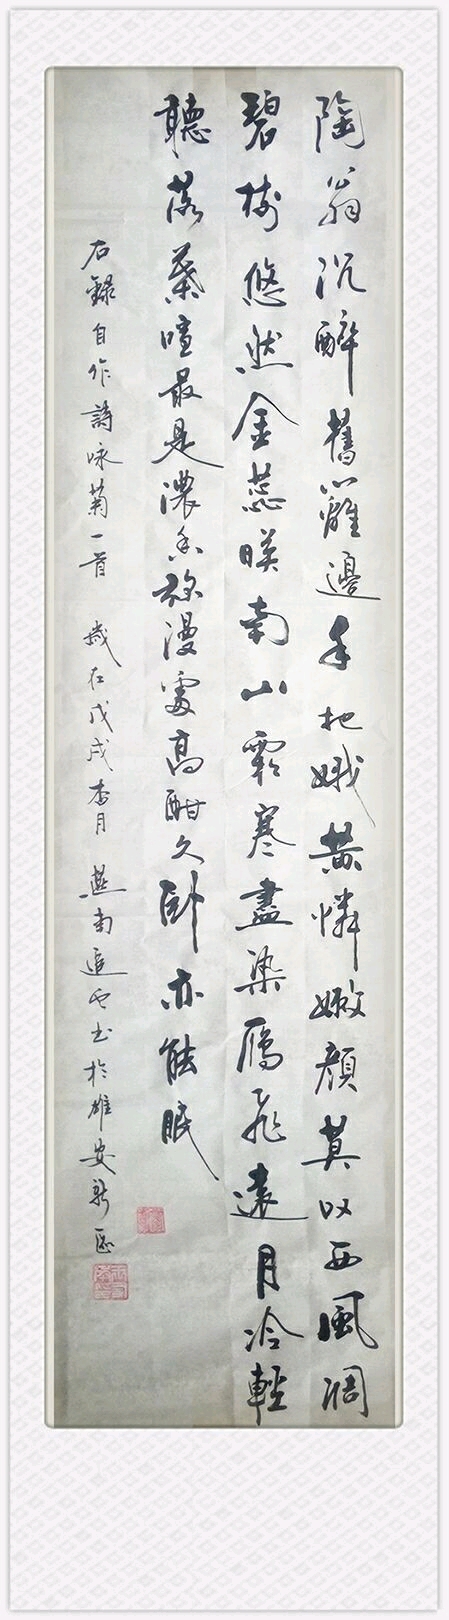 陶翁沉醉舊籬邊手把娥黃憐嫩顏莫以西風凋
碧樹悠然金蕊映南山霜寒盡染雁飛遠月冷輕
聽落葉喧最是濃香弥漫處高酣久卧亦能眠
右錄自作詩咏菊一首 歲在戊戌杏月 燕南追云书於雄安新區